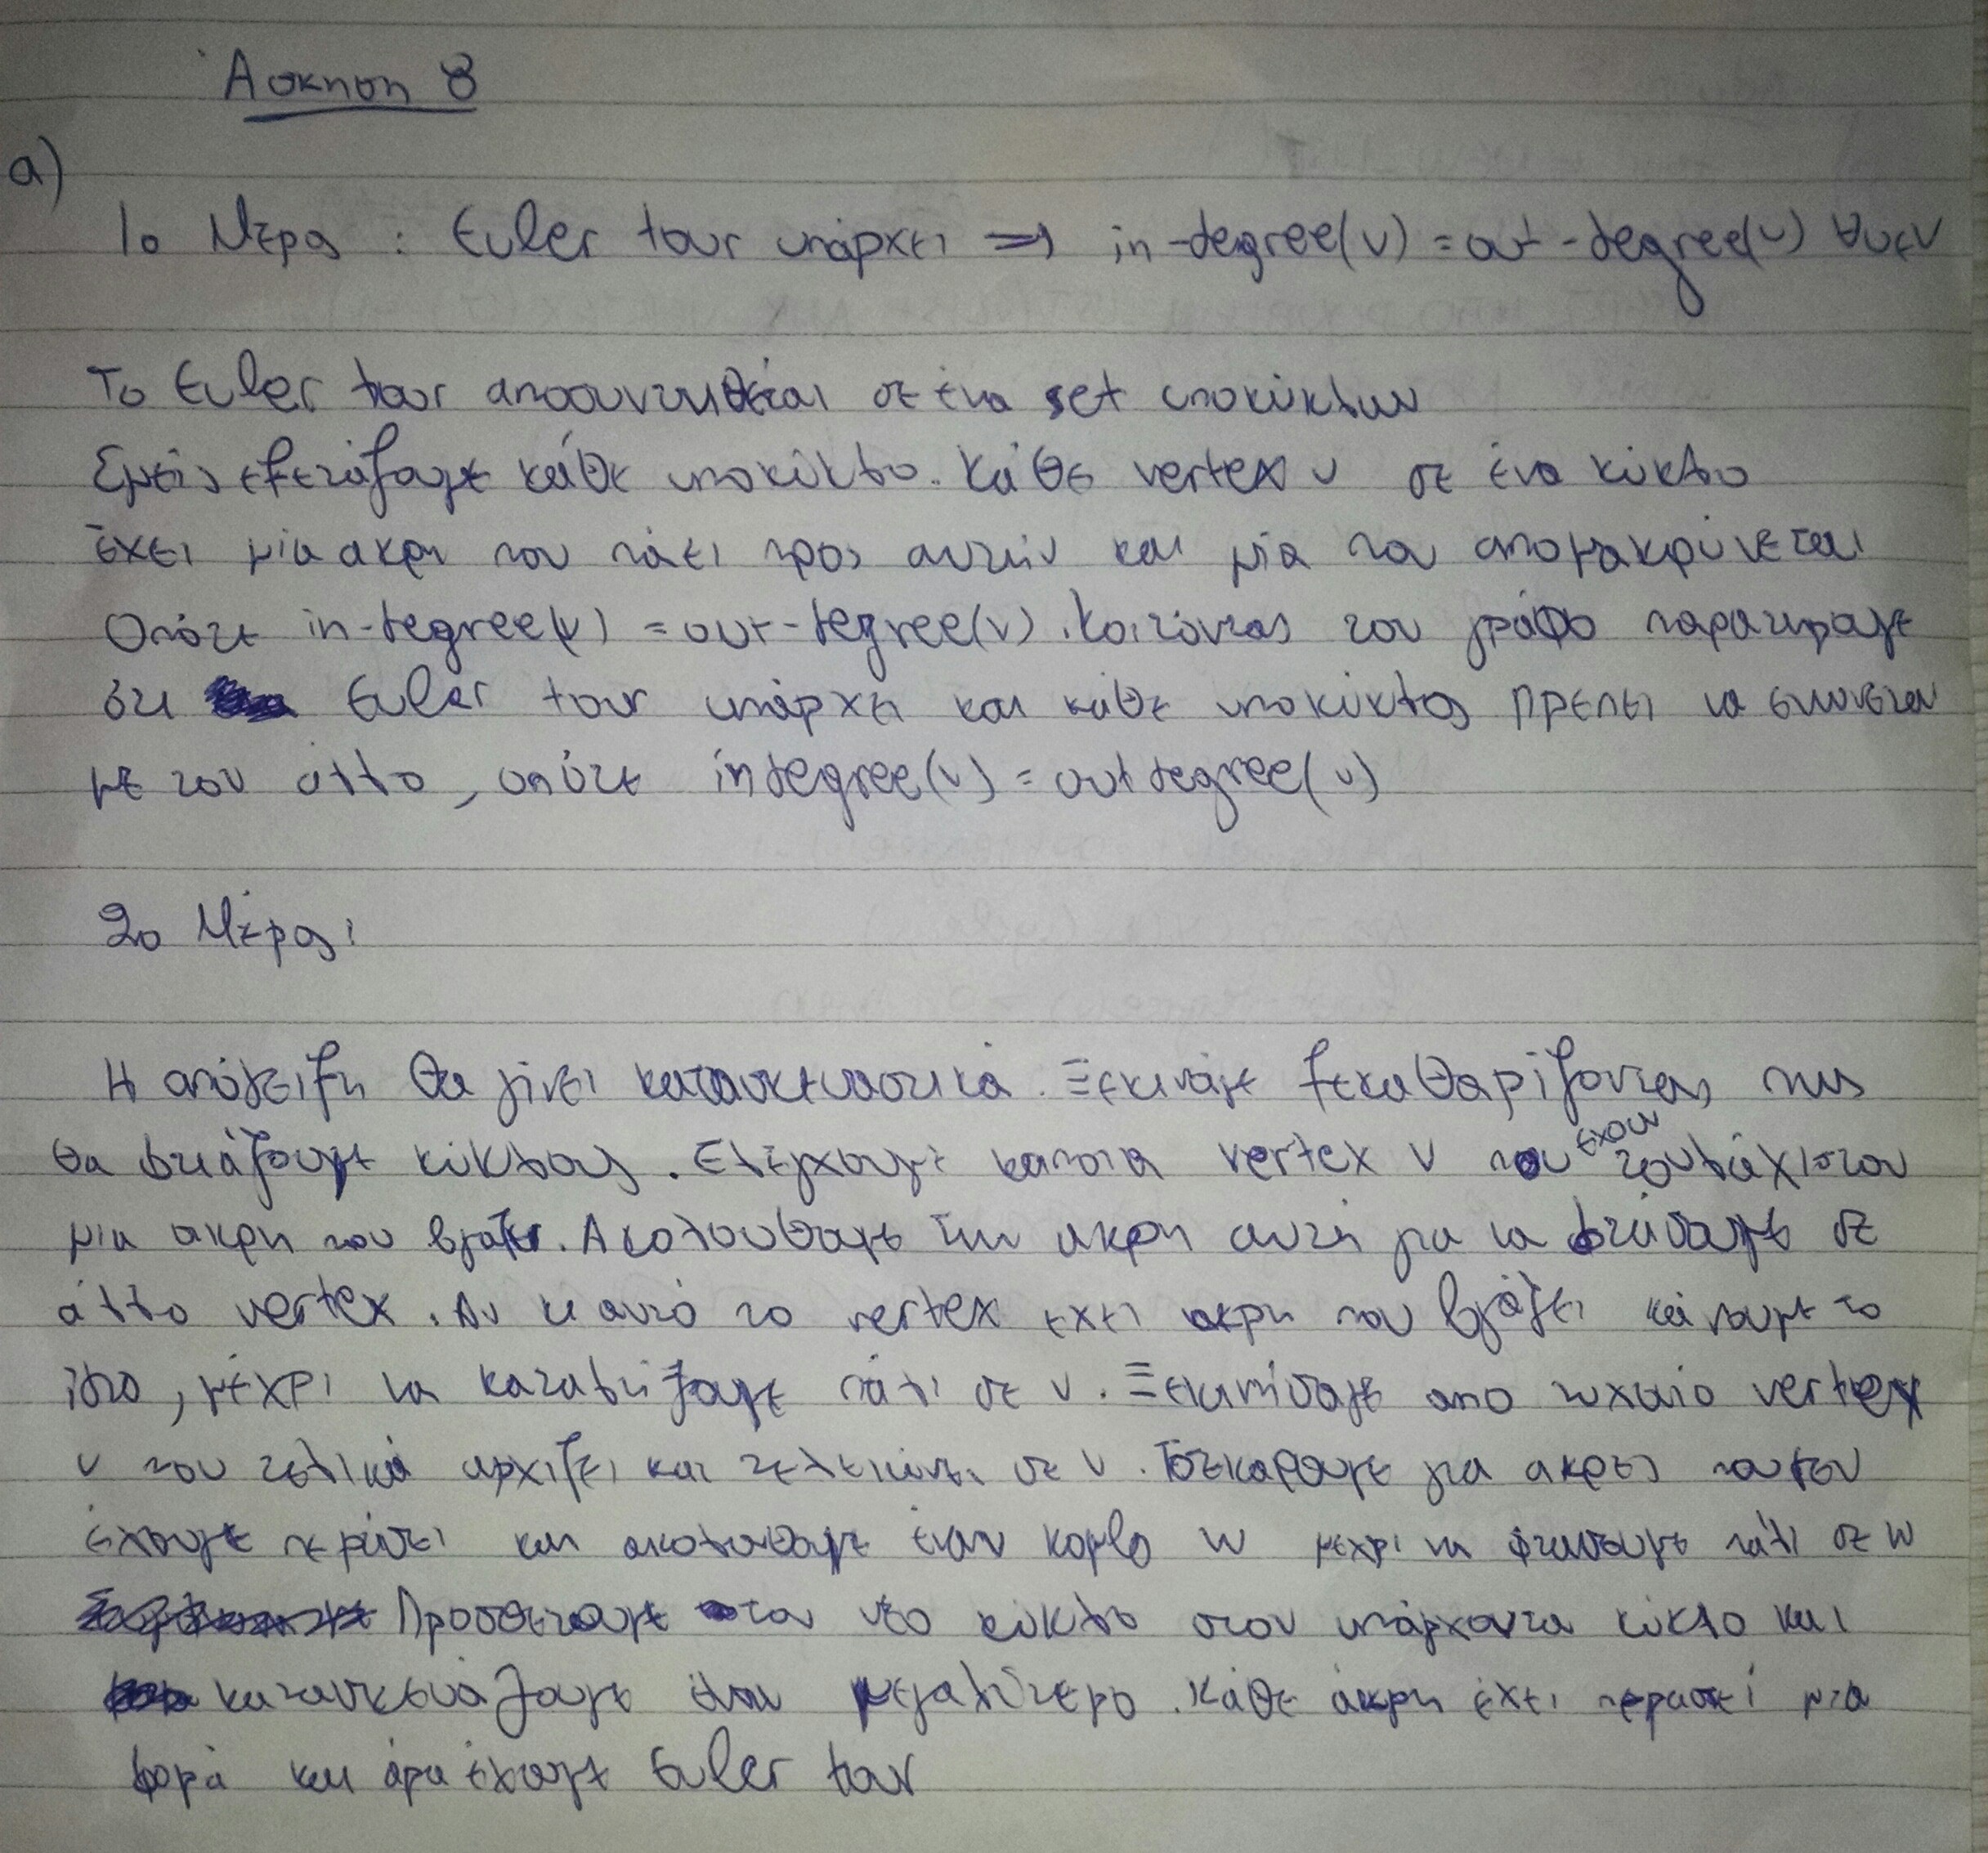 Άσκηση 8
α)
1ο Μέρος : Euler tour υπάρχει ⇒ in-degree(v) = out-degree(v) ∀v∈V
Το Euler tour αποσυντιθέται σε ένα set υποκύκλων
Εμείς εξετάζουμε κάθε υποκύκλο. Κάθε vertex v σε ένα κύκλο
έχει μία ακρη που πάει προς αυτήν και μία που απομακρύνεται
Οπότε in-degree(v) = out-degree(v). Κοιτώντας τον γράφο παρατηρουμε
ότι Euler tour υπάρχει και κάθε υποκύκλος πρέπει να ενωνεται
με τον άλλο, οπότε indegree(v) = outdegree(v)
2ο Μέρος:
Η απόδειξη θα γίνει κατασκευαστικά. Ξεκινάμε ξεκαθαρίζοντας πως
θα φτιάξουμε κύκλους. Ελέγχουμε καποια vertex v που εχουν τουλάχιστον
μια ακρη που βγάζει. Ακολουθουμε την ακρη αυτή για να φτάσουμε σε
άλλο vertex. Αν κι αυτό το vertex εχει ακρη που βγάζει κάνουμε το
ίδιο, μέχρι να καταλήξουμε πάλι σε v. Ξεκινήσαμε απο τυχαίο vertex
v που τελικά αρχιζει και τελειώνει σε v. Τσεκαρουμε για ακρες που δεν
έχουμε περάσει και ακολουθουμε έναν κομβο w μεχρι να φτασουμε πάλι σε w
Προσθετουμε τον νεο κύκλο στον υπάρχοντα κύκλο και
κατασκευάζουμε έναν μεγαλύτερο. Κάθε άκρη έχει περαστεί μια
φορά και άρα έχουμε Euler tour